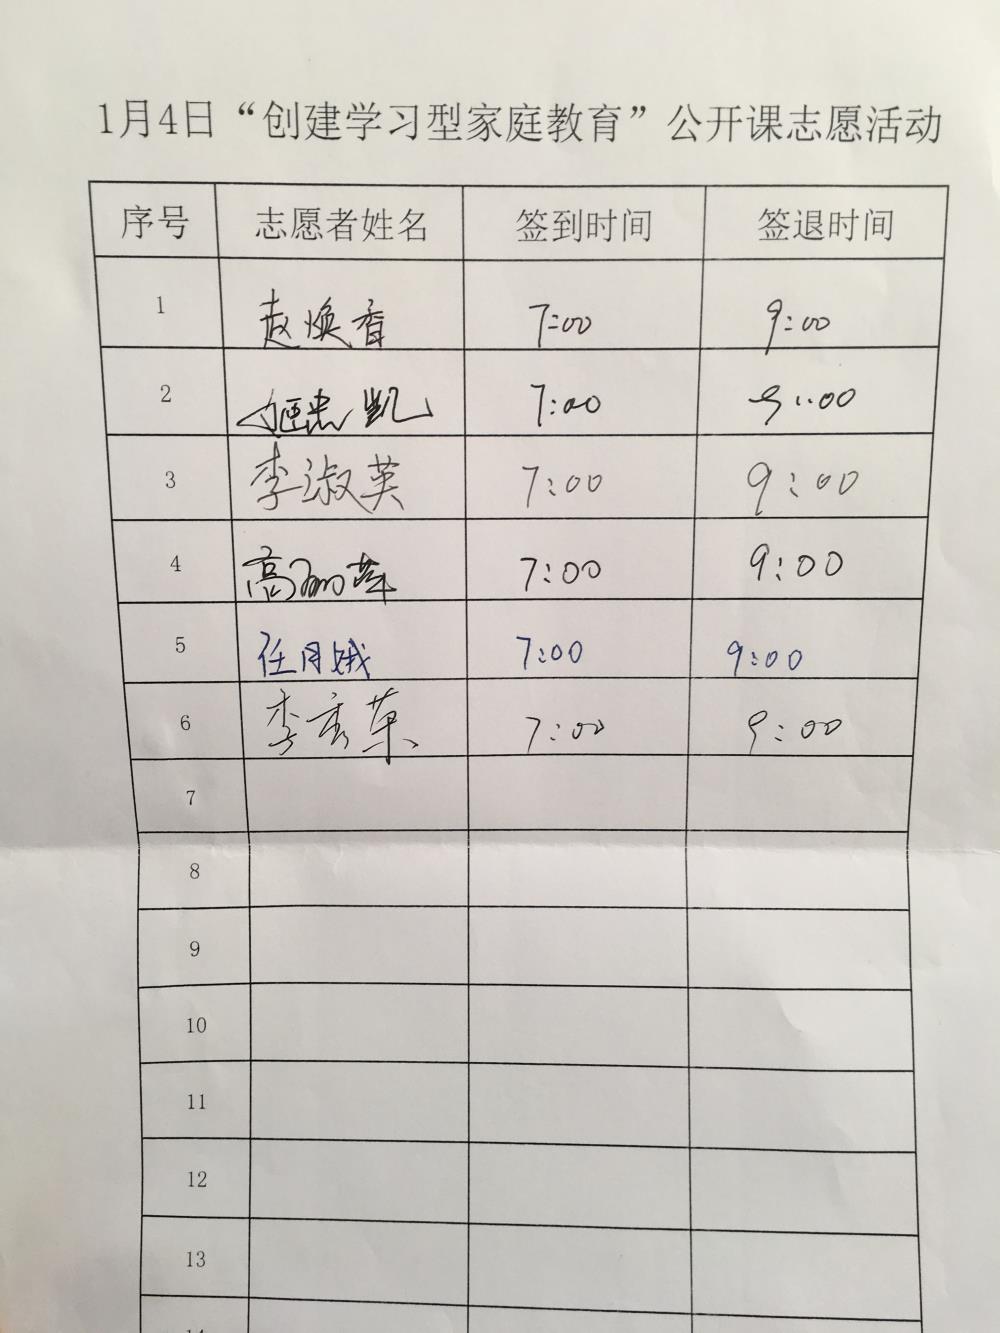 1月4日“创建学习型家庭教育”公开课志愿活动
序号 志愿者姓名 签到时间 签退时间
1 赵焕香 7:00 9:00
2 凯 7:00 9:00
3 李淑英 7:00 9:00
4 高丽萍 7:00 9:00
5 任月娥 7:00 9:00
6 李秀菊 7:00 9:00
7
8
9
10
11
12
13
14